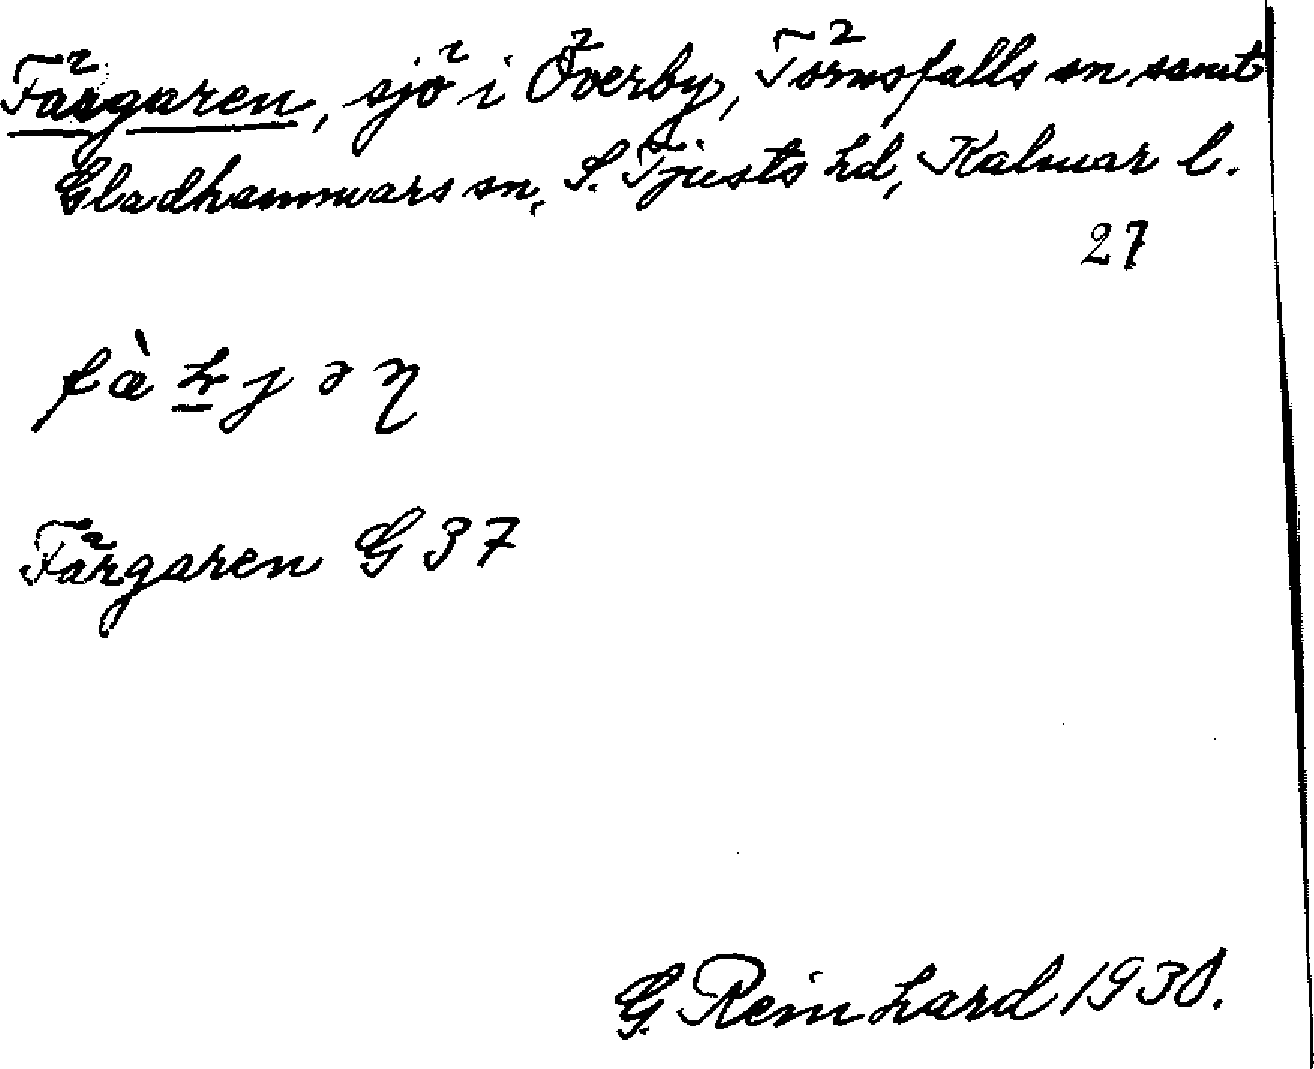 Färgaren, sjö i Överby, Törnsfalls sn samt
Gladhammars sn, S. Tjusts hd, Kalmar l.
27
Färgaren G 37
G. Reinhard 1938.